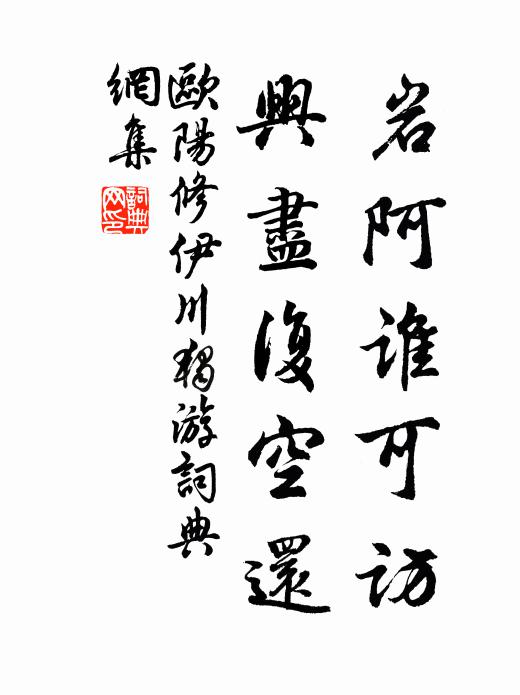 岩阿誰可訪
興盡復空還
歐陽修伊川獨游詞典
網集
詞典
网印